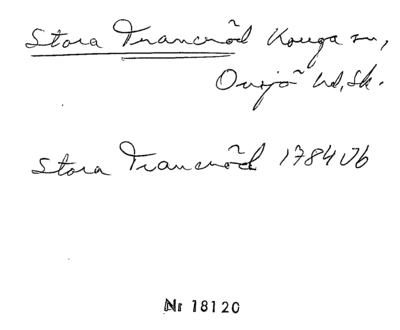 Stora Traneröd Konga sn,
Onsjö hd, Sk.
Stora Traneröd 1784 Jb
Nr 18120